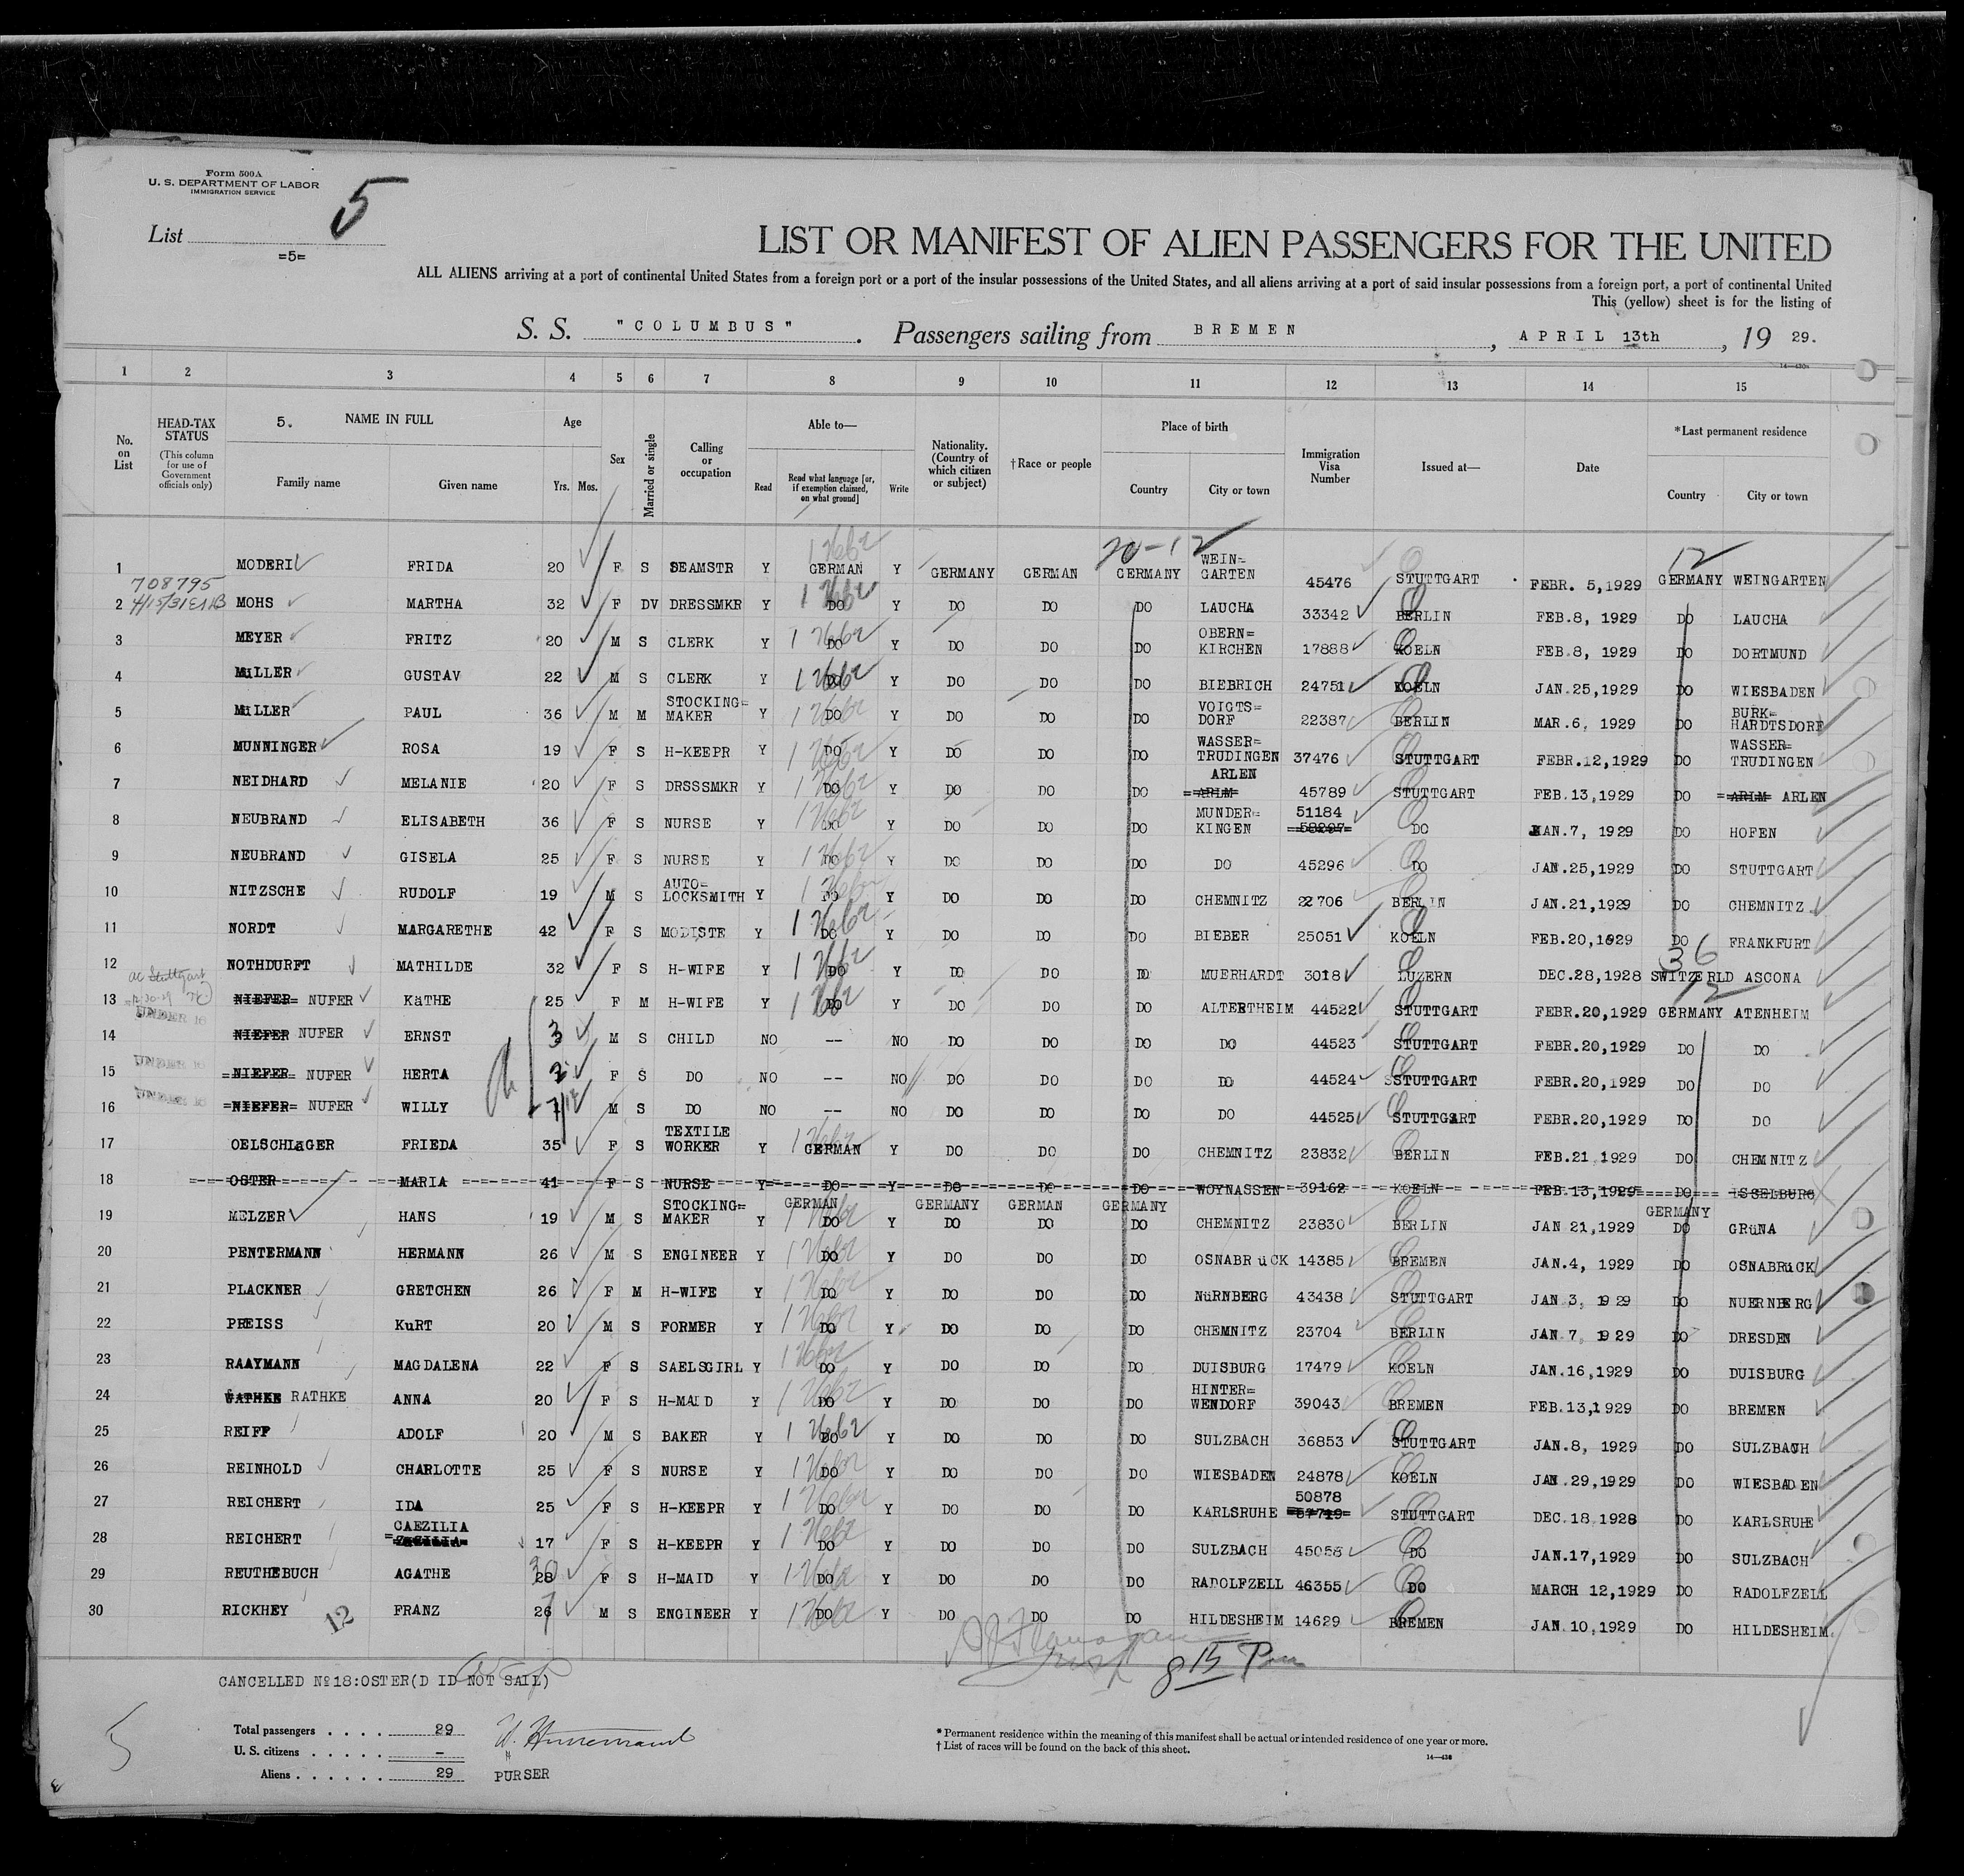 Form 500A
U. S. DEPARTMENT OF LABOR
IMMIGRATION SERVICE
5
List
=5=
LIST OR MANIFEST OF ALIEN PASSENGERS FOR THE UNITED
ALL ALIENS arriving at a port of continental United States from a foreign port or a port of the insular possessions of the United States, and all aliens arriving at a port of said insular possessions from a foreign port, a port of continental United
This (yellow) sheet is for the listing of
S. S. "COLUMBUS" . Passengers sailing from BREMEN , APRIL 13th , 19 29.
14—430
1 2 3 4 5 6 7 8 9 10 11 12 13 14 15
No. on List
HEAD-TAX STATUS (This column for use of Government officials only)
5. NAME IN FULL
Family name Given name
Age Yrs. Mos.
Sex
Married or single
Calling or occupation
Able to—
Read Read what language [or, if exemption claimed, on what ground] Write
Nationality. (Country of which citizen or subject)
†Race or people
Place of birth
Country City or town
Immigration Visa Number
Issued at—
Date
*Last permanent residence
Country City or town
20-12 12
1 MODERI FRIDA 20 F S SEAMSTR Y GERMAN Y GERMANY GERMAN GERMANY WEIN= GARTEN 45476 STUTTGART FEBR. 5,1929 GERMANY WEINGARTEN
708795
2 MOHS MARTHA 32 F DV DRESSMKR Y DO Y DO DO DO LAUCHA 33342 BERLIN FEB.8, 1929 DO LAUCHA
3 MEYER FRITZ 20 M S CLERK Y DO Y DO DO DO OBERN= KIRCHEN 17888 KOELN FEB.8, 1929 DO DORTMUND
4 MüLLER GUSTAV 22 M S CLERK Y DO Y DO DO DO BIEBRICH 24751 KOELN JAN.25,1929 DO WIESBADEN
5 MüLLER PAUL 36 M M STOCKING= MAKER Y DO Y DO DO DO VOIGTS= DORF 22387 BERLIN MAR.6, 1929 DO BURK= HARDTSDORF
6 MUNNINGER ROSA 19 F S H-KEEPR Y DO Y DO DO DO WASSER= TRUDINGEN 37476 STUTTGART FEBR.12,1929 DO WASSER= TRUDINGEN
7 NEIDHARD MELANIE 20 F S DRSSSMKR Y DO Y DO DO DO ARLEN =ARLM= 45789 STUTTGART FEB.13,1929 DO =ARLM= ARLEN
8 NEUBRAND ELISABETH 36 F S NURSE Y DO Y DO DO DO MUNDER= KINGEN 51184 DO JAN.7, 1929 DO HOFEN
9 NEUBRAND GISELA 25 F S NURSE Y DO Y DO DO DO DO 45296 DO JAN.25,1929 DO STUTTGART
10 NITZSCHE RUDOLF 19 M S AUTO= LOCKSMITH Y DO Y DO DO DO CHEMNITZ 22706 BERLIN JAN.21,1929 DO CHEMNITZ
11 NORDT MARGARETHE 42 F S MODISTE Y DO Y DO DO DO BIEBER 25051 KOELN FEB.20,1929 DO FRANKFURT
36
12 NOTHDURFT MATHILDE 32 F S H-WIFE Y DO Y DO DO DO MUERHARDT 3018 LUZERN DEC.28,1928 SWITZERLD ASCONA
12
13 =NIEFER= NUFER KäTHE 25 F M H-WIFE Y DO Y DO DO DO ALTERTHEIM 44522 STUTTGART FEBR.20,1929 GERMANY ATENHEIM
UNDER 16
14 NIEFER NUFER ERNST 3 M S CHILD NO -- NO DO DO DO DO 44523 STUTTGART FEBR.20,1929 DO DO
UNDER 16
15 =NIEFER= NUFER HERTA 2 F S DO NO -- NO DO DO DO DO 44524 SSTUTTGART FEBR.20,1929 DO DO
UNDER 16
16 =NIEFER= NUFER WILLY 7/12 M S DO NO -- NO DO DO DO DO 44525 STUTTGART FEBR.20,1929 DO DO
17 OELSCHLäGER FRIEDA 35 F S TEXTILE WORKER Y GERMAN Y DO DO DO CHEMNITZ 23832 BERLIN FEB.21,1929 DO CHEMNITZ
18 OSTER MARIA 41 F S NURSE Y DO Y DO DO DO WOYNASSEN 39162 KOELN FEB.13,1929 DO ISSELBURG
GERMAN GERMANY GERMAN GERMANY GERMANY
19 MELZER HANS 19 M S STOCKING= MAKER Y DO Y DO DO DO CHEMNITZ 23830 BERLIN JAN 21,1929 DO GRüNA
20 PENTERMANN HERMANN 26 M S ENGINEER Y DO Y DO DO DO OSNABRüCK 14385 BREMEN JAN.4, 1929 DO OSNABRüCK
21 PLACKNER GRETCHEN 26 F M H-WIFE Y DO Y DO DO DO NüRNBERG 43438 STUTTGART JAN 3, 1929 DO NUERNBERG
22 PREISS KuRT 20 M S FORMER Y DO Y DO DO DO CHEMNITZ 23704 BERLIN JAN 7, 1929 DO DRESDEN
23 RAAYMANN MAGDALENA 22 F S SAELSGIRL Y DO Y DO DO DO DUISBURG 17479 KOELN JAN.16,1929 DO DUISBURG
24 RATHKE ANNA 20 F S H-MAID Y DO Y DO DO DO HINTER= WENDORF 39043 BREMEN FEB.13,1929 DO BREMEN
25 REIFF ADOLF 20 M S BAKER Y DO Y DO DO DO SULZBACH 36853 STUTTGART JAN.8, 1929 DO SULZBACH
26 REINHOLD CHARLOTTE 25 F S NURSE Y DO Y DO DO DO WIESBADEN 24878 KOELN JAN.29,1929 DO WIESBADEN
27 REICHERT IDA 25 F S H-KEEPR Y DO Y DO DO DO KARLSRUHE 50878 STUTTGART DEC.18,1928 DO KARLSRUHE
28 REICHERT CAEZILIA 17 F S H-KEEPR Y DO Y DO DO DO SULZBACH 45058 DO JAN.17,1929 DO SULZBACH
29 REUTHEBUCH AGATHE 28 30 F S H-MAID Y DO Y DO DO DO RADOLFZELL 46355 DO MARCH 12,1929 DO RADOLFZELL
30 RICKHEY FRANZ 26 M S ENGINEER Y DO Y DO DO DO HILDESHEIM 14629 BREMEN JAN.10,1929 DO HILDESHEIM
12
8 15 Pm
CANCELLED No18:OSTER(DID NOT SAIL)
5
Total passengers . . . . 29
U. S. citizens . . . . . –
Aliens . . . . . . 29
PURSER
*Permanent residence within the meaning of this manifest shall be actual or intended residence of one year or more.
†List of races will be found on the back of this sheet.
14—430